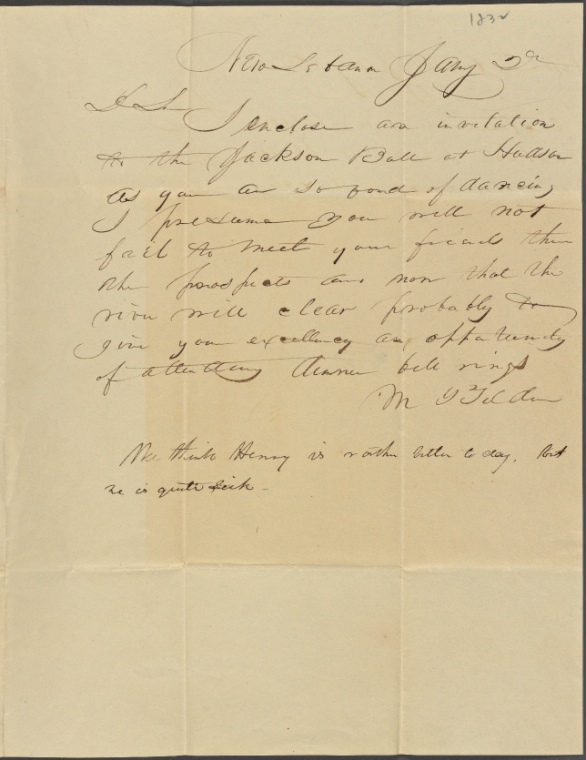 1832
New Lebanon Jany 2d
D Sir
I enclose an invitation
to the Jackson Ball at Hudson
as you are so fond of dancing
I presume you will not
fail to meet your friends there
the prospects are now that the
river will clear probably to
give your excellency an opportunity
of attending dinner bell rings
M Y Tilden
We think Henry is rather better to day. but
he is quite sick -